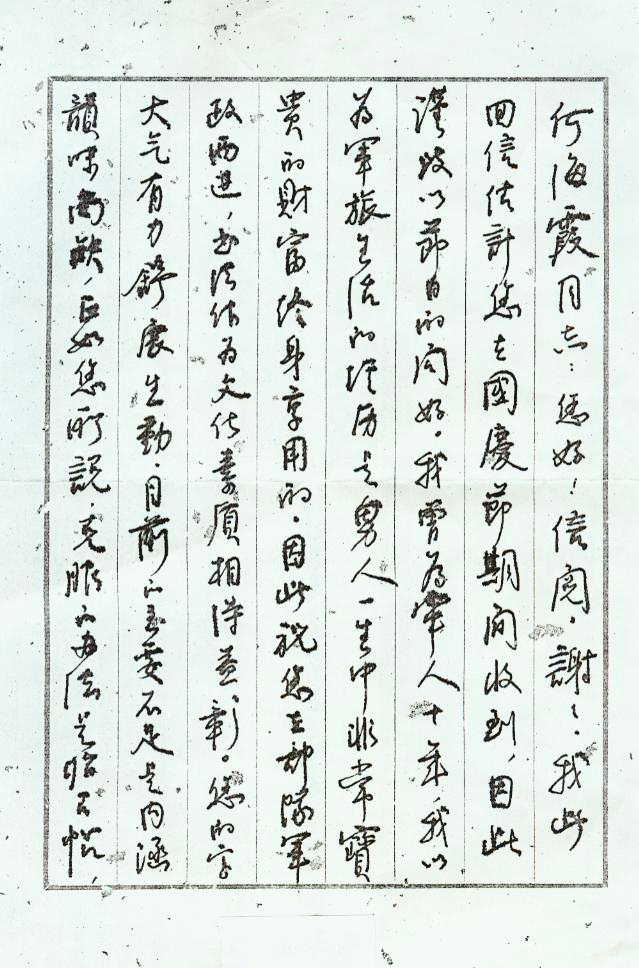 何海霞同志：您好！信阅，謝〻。我此
回信估計您在國慶節期间收到，因此
谨致以節日的问好。我曾為军人十年，我以
為軍旅生活的经历是男人一生中非常寶
贵的財富终身享用的。因此祝您在部隊军
政两进，书法作为文化素质相得益彰。您的字
大气有力舒展生動，目前的主要不足是内涵
韻味尚缺，正如您所説，克服的办法是临百帖，